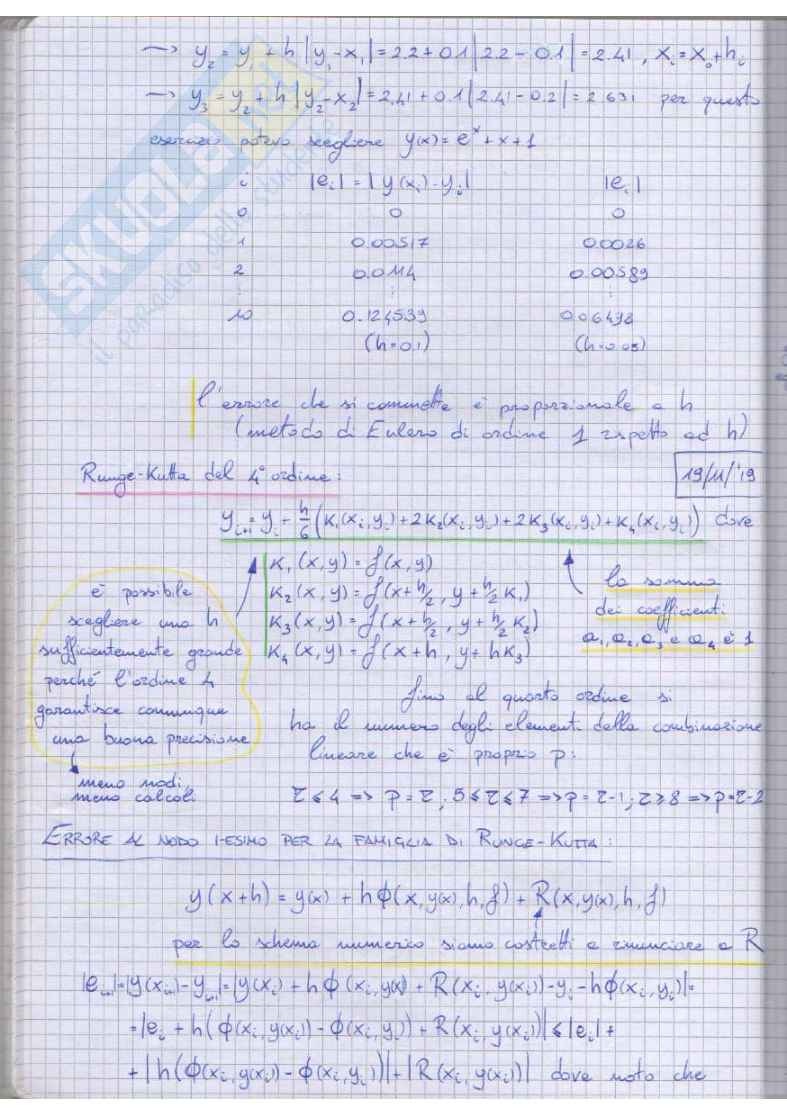 → y₂ = y₁ + h |y₁-x₁| = 2.2 + 0.1 |2.2 - 0.1| = 2.41, xᵢ = x₀ + hᵢ
→ y₃ = y₂ + h |y₂-x₂| = 2.41 + 0.1 |2.41 - 0.2| = 2.631 per questo
esercizio potevo scegliere y(x) = eˣ + x + 1
i |eᵢ| = |y(xᵢ) - yᵢ| |eᵢ|
0 0 0
1 0.00517 0.0026
2 0.0114 0.00589
⋮ ⋮ ⋮
10 0.124539 0.06498
(h=0.1) (h=0.05)
l'errore che si commette è proporzionale a h
(metodo di Eulero di ordine 1 rispetto ad h)
Runge-Kutta del 4° ordine:
19/11/'19
yᵢ₊₁ = yᵢ + h/6 (K₁(xᵢ,yᵢ) + 2K₂(xᵢ,yᵢ) + 2K₃(xᵢ,yᵢ) + K₄(xᵢ,yᵢ)) dove
K₁(x,y) = f(x,y)
K₂(x,y) = f(x+h/2, y+h/2 K₁)
K₃(x,y) = f(x+h/2, y+h/2 K₂)
K₄(x,y) = f(x+h, y+hK₃)
è possibile
scegliere una h
sufficientemente grande
perché l'ordine 4
garantisce comunque
una buona precisione
meno nodi
meno calcoli
la somma
dei coefficienti
a₁, a₂, a₃ e a₄ è 1
fino al quarto ordine si
ha il numero degli elementi della combinazione
lineare che è proprio p:
τ ≤ 4 => p = τ, 5 ≤ τ ≤ 7 => p = τ-1; τ ≥ 8 => p = τ-2
ERRORE AL NODO I-ESIMO PER LA FAMIGLIA DI RUNGE-KUTTA:
y(x+h) = y(x) + hϕ(x, y(x), h, f) + R(x, y(x), h, f)
per lo schema numerico siamo costretti a rinunciare a R
|eᵢ₊₁| = |y(xᵢ₊₁) - yᵢ₊₁| = |y(xᵢ) + hϕ(xᵢ, y(x)) + R(xᵢ, y(xᵢ)) - yᵢ - hϕ(xᵢ, yᵢ)| =
= |eᵢ + h(ϕ(xᵢ, y(xᵢ)) - ϕ(xᵢ, yᵢ)) + R(xᵢ, y(xᵢ))| ≤ |eᵢ| +
+ |h(ϕ(xᵢ, y(xᵢ)) - ϕ(xᵢ, yᵢ))| + |R(xᵢ, y(xᵢ))| dove noto che